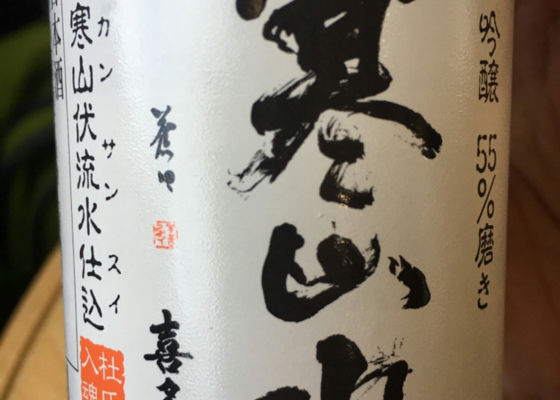 吟醸 55%磨き
寒山水
喜多
カンサンスイ
寒山伏流水仕込
杜氏
入魂
日本酒